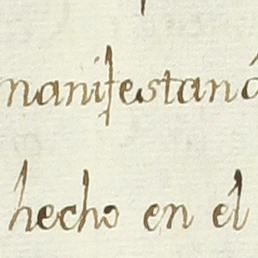 manifestan
hecho en el